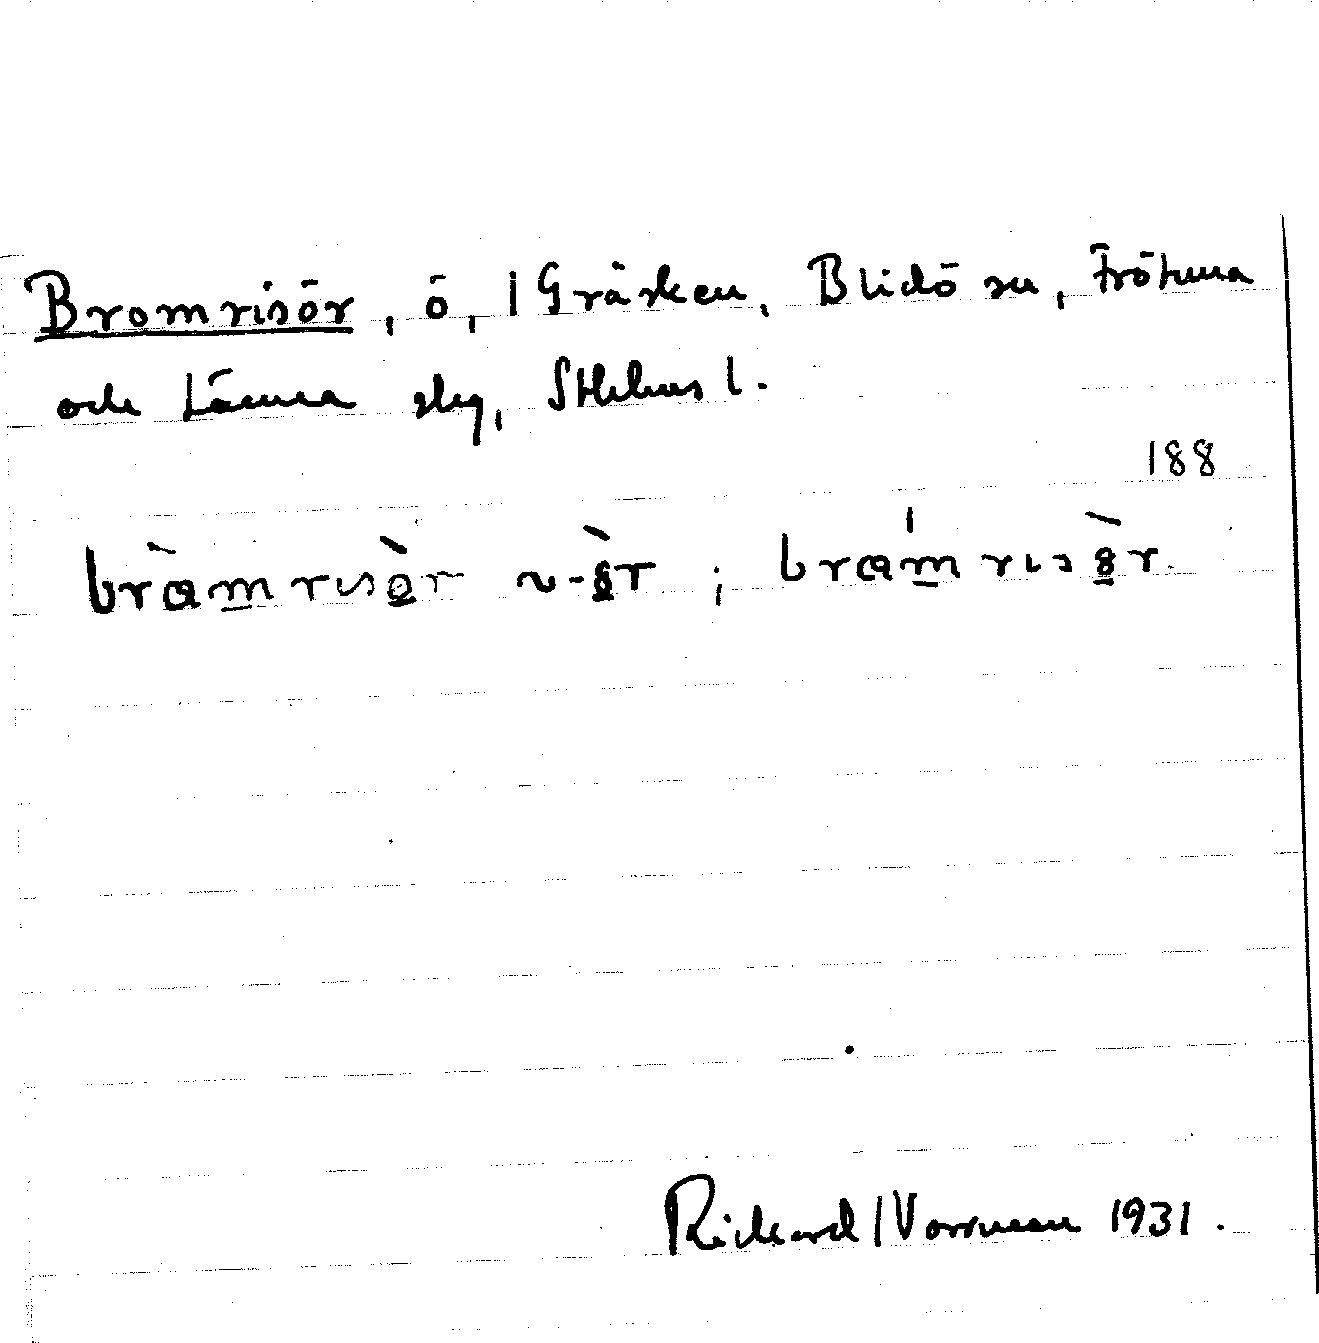 Bromrisör, ö, i Gräsken, Blidö sn, Frötuna
och Länna slg, Sthlms l.
188
bràm̲risò̲r ~-ò̲r ; brám̲risò̲r.
Rickard Norrman 1931.